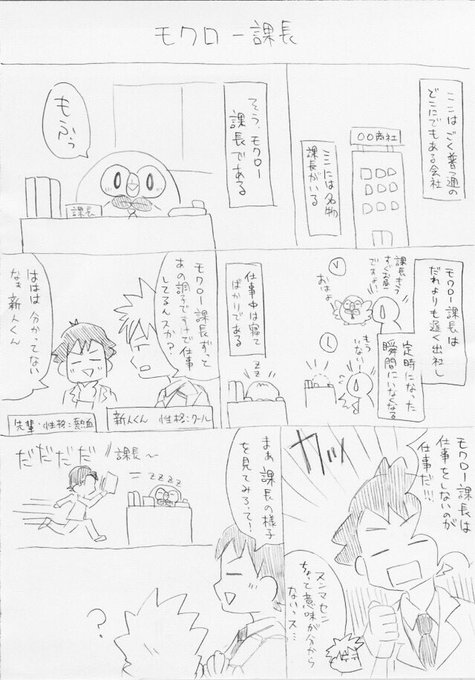 モクロー課長
ここはごく普通の
どこにでもある会社
○○商社
ここには名物
課長がいる
そう、モクロー
課長である
もふぅ
課長
モクロー課長は
だれよりも遅く出社し
課長もう
すぐお昼
ですよ
おはよ
定時になった
瞬間にいなくなる
もう
いない
仕事中は寝て
ばかりである
zzz
モクロー課長ずっと
あの調子ですけど仕事
してるんスか?
ははは 分かってない
なぁ 新人くん
新人くん 性格:クール
先輩・性格:熱血
モクロー課長は
仕事をしないのが
仕事だ!!!
カッ
スンマセン
ちょっと意味が分から
ないッス…
まあ課長の様子
を見てみろって!
課長〜
だだだだ
zzzz
?